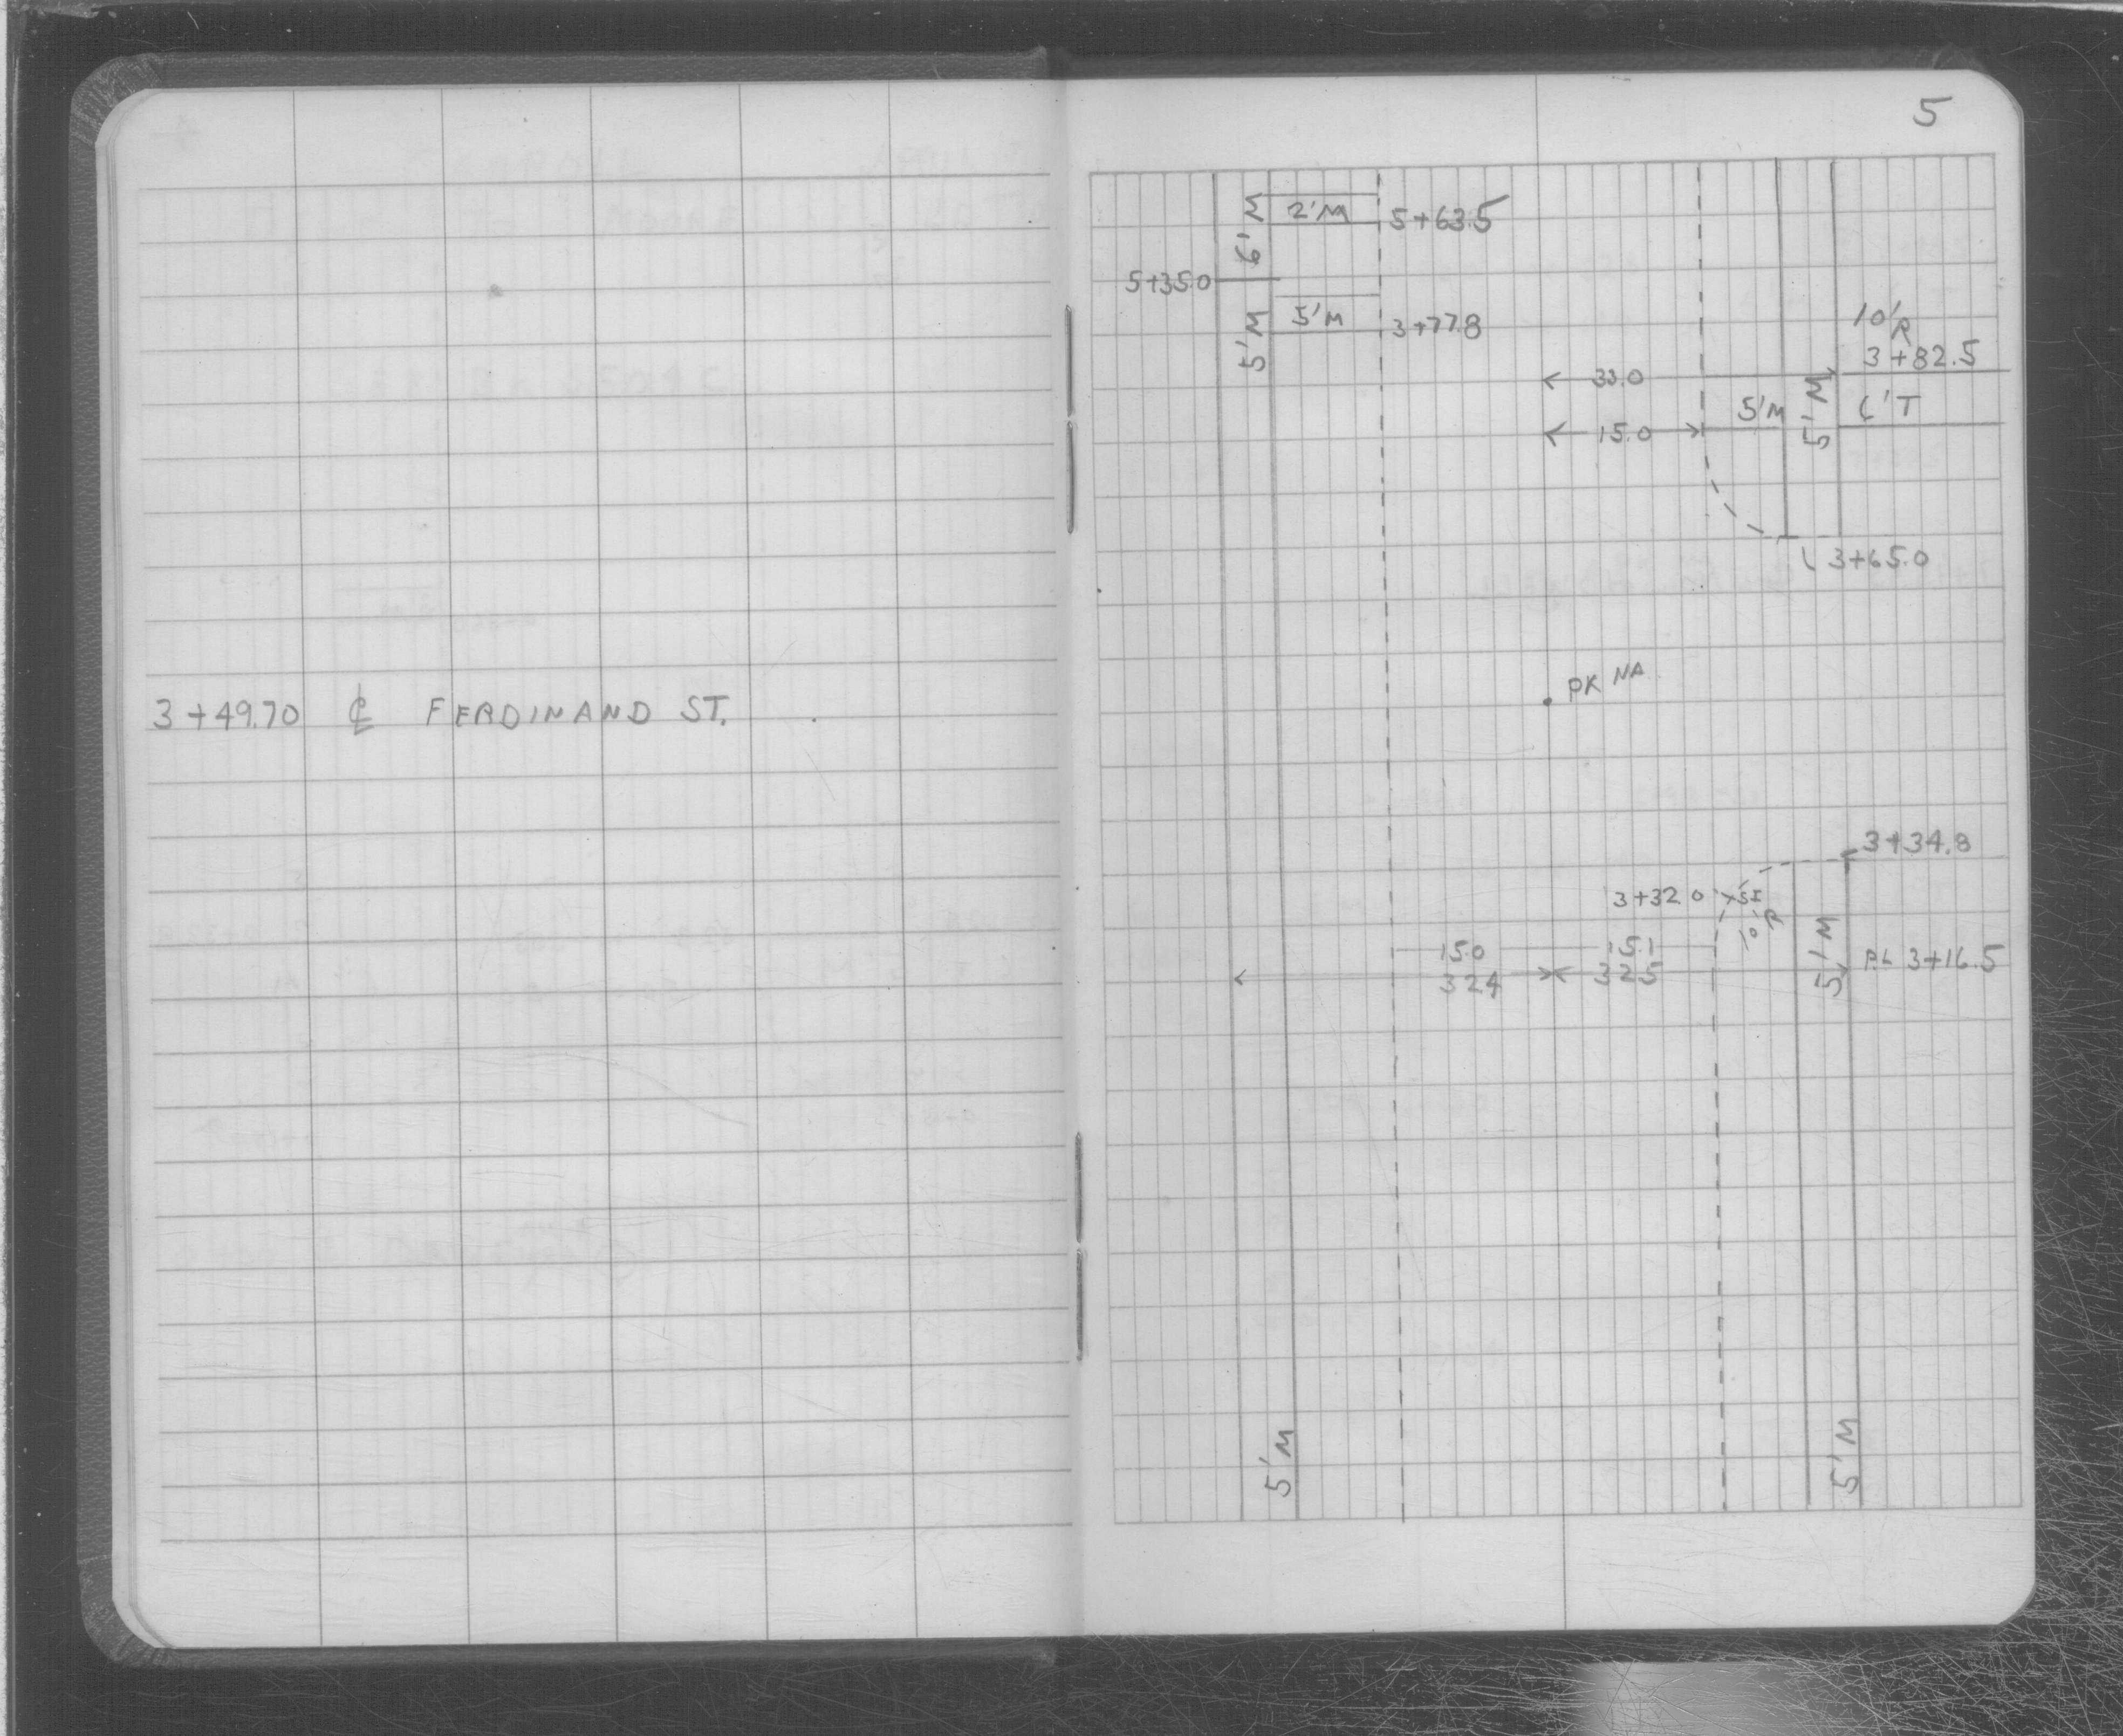 5
2'M
5+63.5
6'M
5+35.0
5'M
5'M
3+77.8
10'R
3+82.5
33.0
5'M
5'M
6'T
15.0
3+65.0
PK NA
3+49.70 ℄ FERDINAND ST.
3+34.8
3+32.0
SI
10'R
15.0
15.1
5'M
PL 3+16.5
32.4
32.5
5'M
5'M